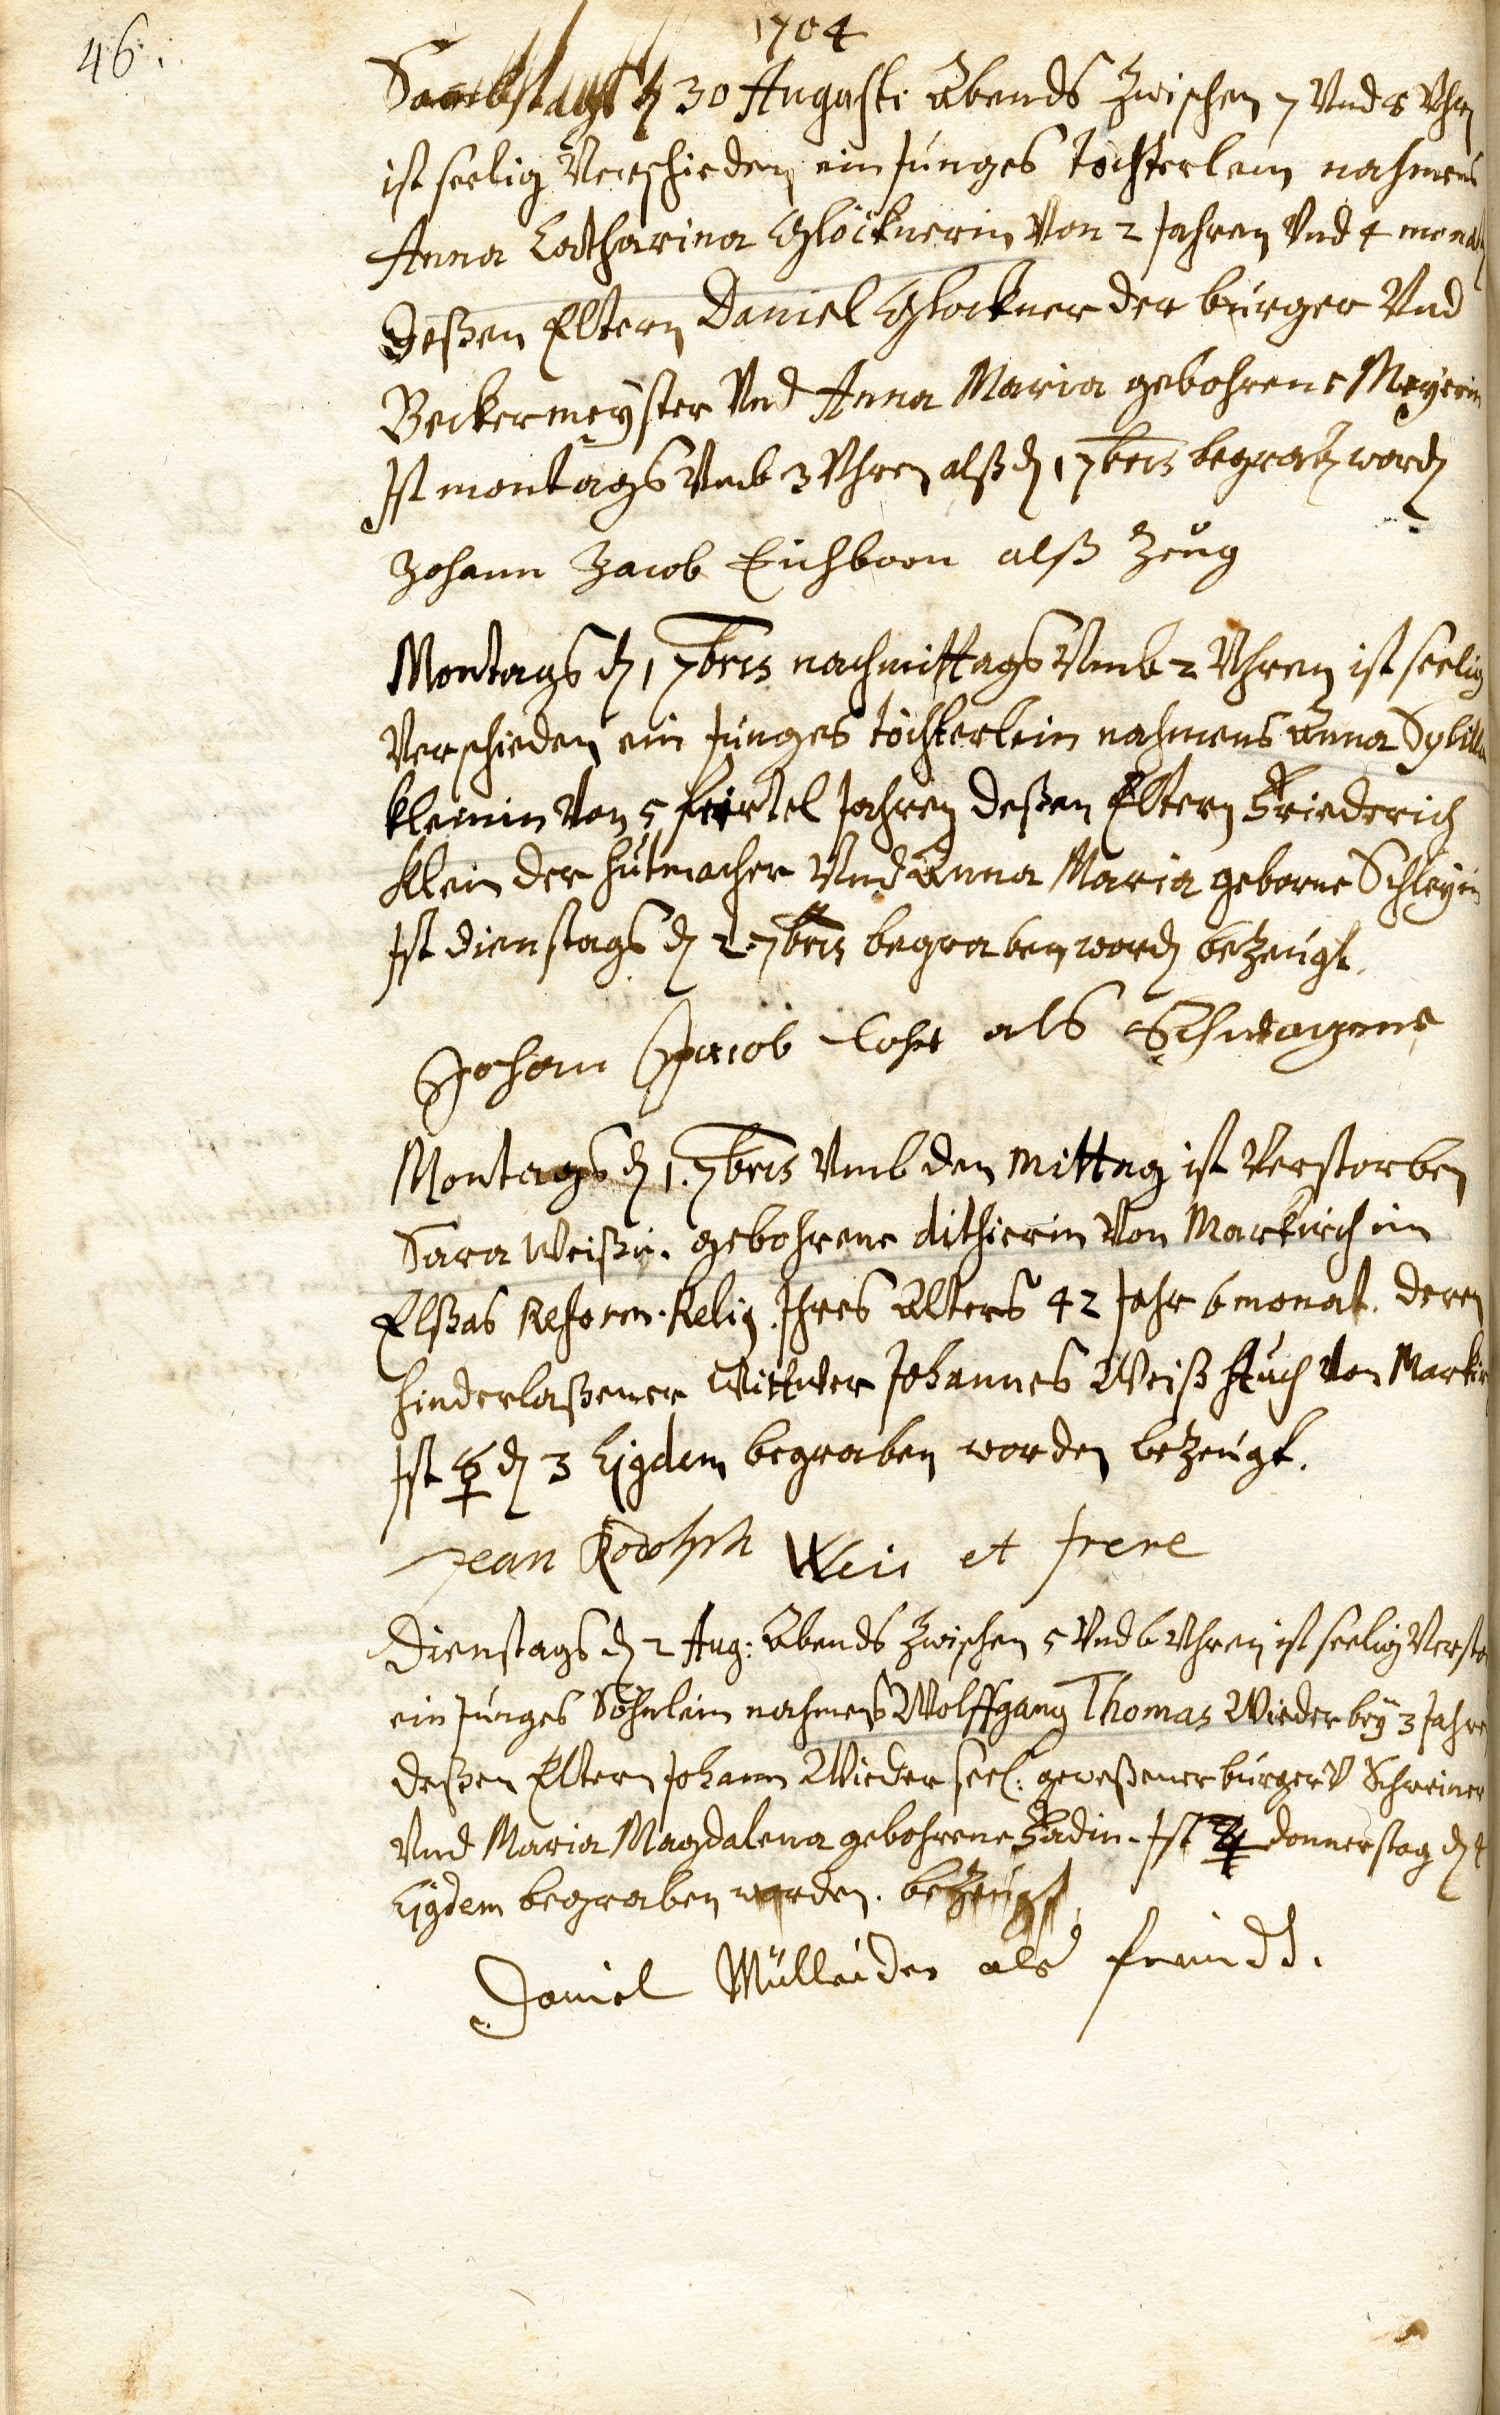 46.
1704
Sambstags d 30 Augusti Abends Zwischen 7 Vnd 8 Vhrn
ist seelig Verschieden ein Junges töchterlein nahmens
Anna Catharina Glöcknerin Von 2 Jahren Vnd 4 monat
deßen Eltern Daniel Glockner der burger Vnd
Beckermeyster Vnd Anna Maria gebohrene Meyerin
Ist montags Vmb 3 Vhren alß d 1 7bris begrab word
Johann Jacob Eichborn alß Zeug
Montags d 1 7bris nachmittags Vmb 2 Vhren ist seelig
Verschieden ein Junges töchterlein nahmens Anna Sybilla
kleinin Von 5 fiertel Jahren deßen Eltern Friederich
Klein der hutmacher Vnd Anna Maria geborne Schleyin
Ist dienstags d 2 7bris begraben word bezeugt.
Johan Jacob als Schwager
Montags d 1. 7bris Vmb den mittag ist Verstorben
Sara Weißin. gebohrene dithierin Von Markirch im
Elßas Reform. Relig. Ihres Alters 42 Jahr 6 monat. deren
hinderlaßener Wittwer Johannes Weiß Auch Von Markir
Ist ☿ d 3 Ejgdem begraben worden bezeugt.
Jean Rodolph Weis et frere
Dienstags d 2 Aug: Abends Zwischen 5 Vnd 6 Vhren ist seelig Versto
ein Junges Söhnlein nahmens Wolffgang Thomas Wieder bey 3 Jahre
deßen Eltern Johann Wieder seel: geweßener burger V Schreiner
Vnd Maria Magdalena gebohrene Fadin. Ist ♃ donnerstag d 4
Ejgdem begraben worden. bezeugt
Daniel als freundt.